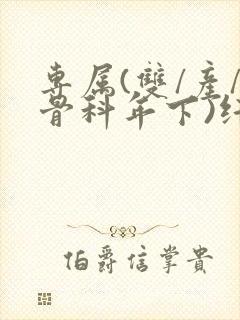 專属(雙/產/
骨科年下)
伯爵信掌貴